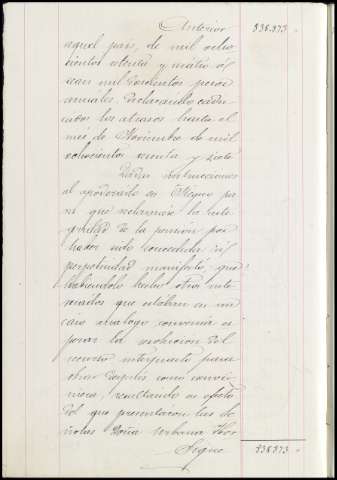 Anterior 838.973
aquel país, de mil ocho
cientos ochenta y cuatro ó
sean mil doscientos pesos
anuales, declarando cadu
cados los atrasos hasta el
més de Noviembre de mil
ochocientos noventa y siete
Dadas instrucciones
al apoderado en Mégico pa
ra que reclamára la inte
gridad de la pensión por
haber sido concedida á
perpetuidad manifestó, que
habiéndolo hecho otros inte
resados que estaban en un
caso análogo, convenia es
perar la resolucion del
recurso interpuesto para
obrar después como convi
niera, resultando en efecto
del que presentaron las se
ñoras Doña
Sigue 838.973